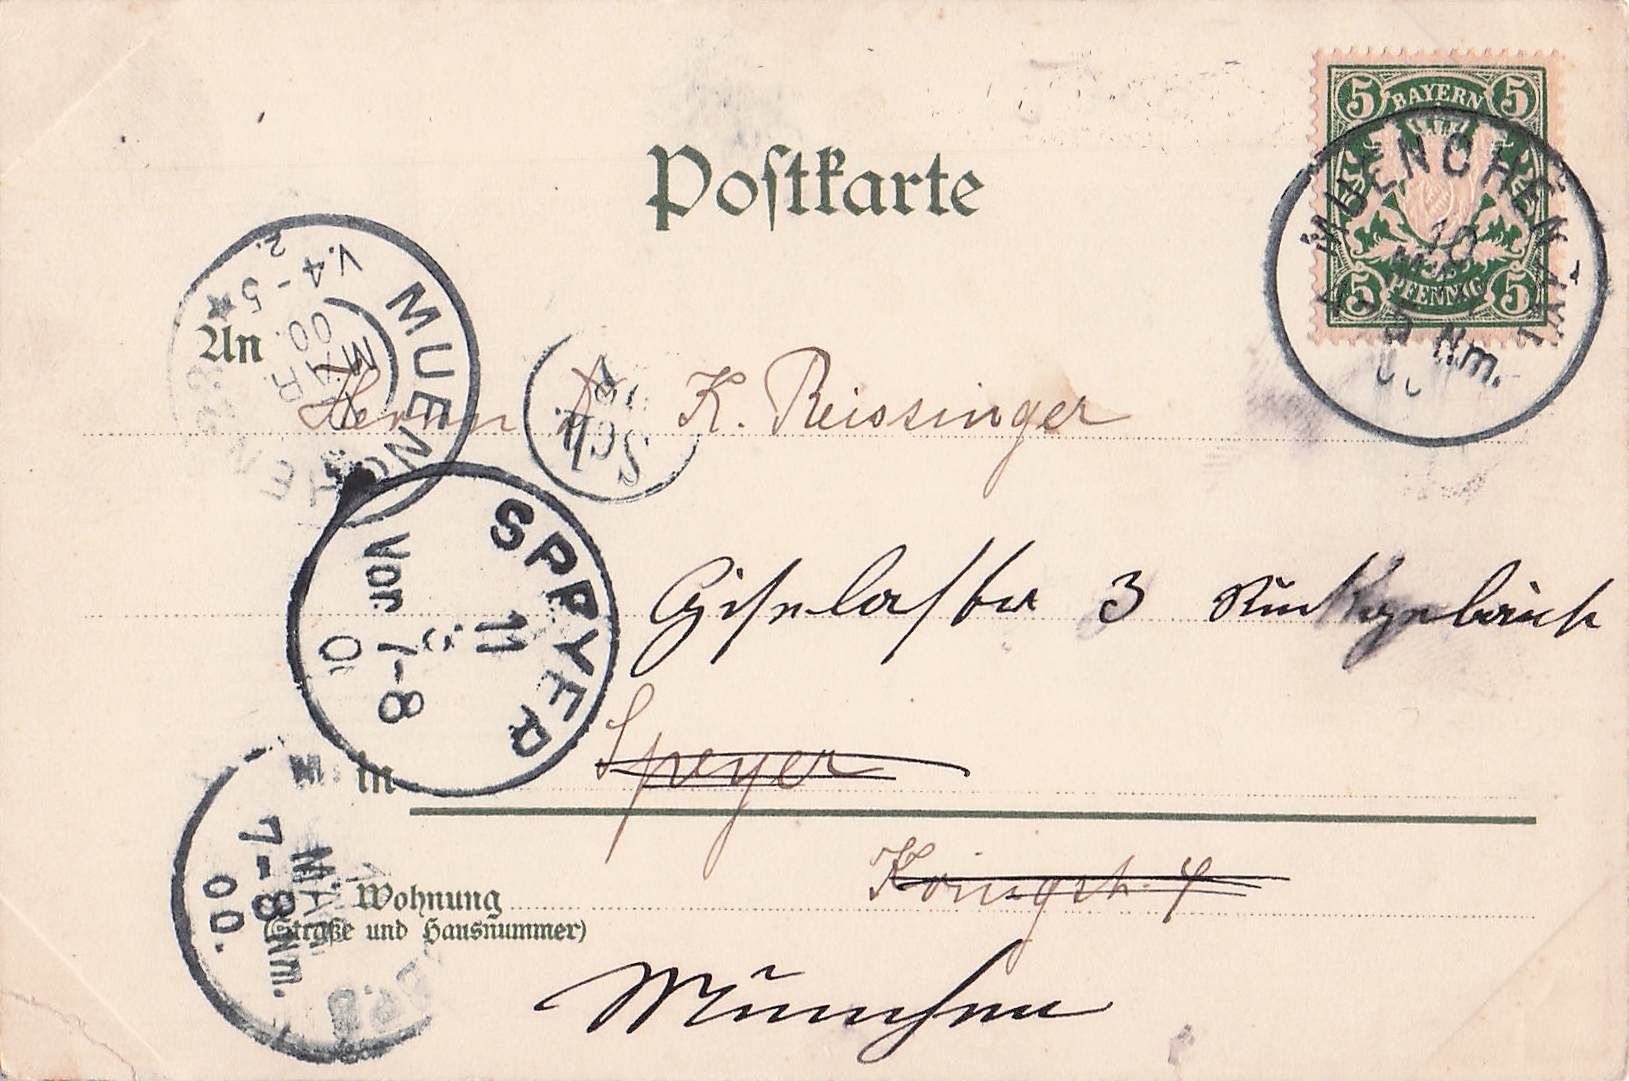 5 BAYERN 5
5 PFENNIG 5
MUENCHEN
10
5 Nm.
Postkarte
MUENCHEN
V. 4-5
MAR.
00.
2.
An
Herrn K. Reissinger
Sch
SPEYER
11
3
Vor. 7-8
Giselastr 3 Rückgebäude
in Speyer
7-8 Nm.
MAR
00.
Wohnung
Königstr. 4
(Straße und Hausnummer)
München